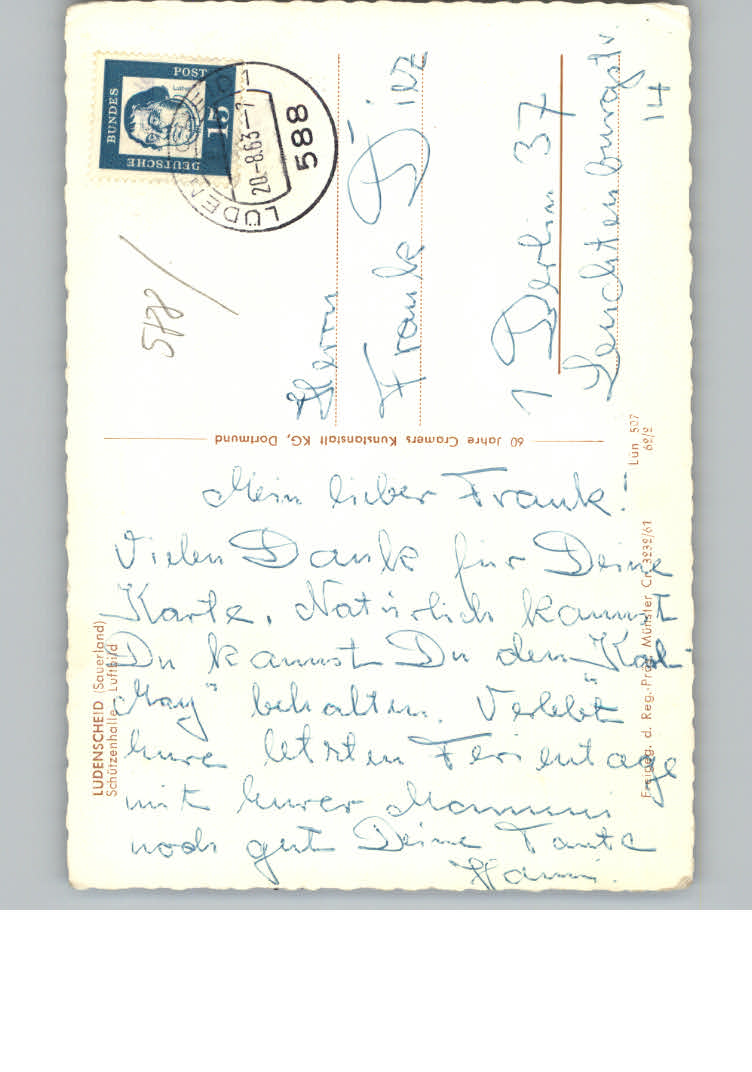 DEUTSCHE
BUNDES
POST
15
LÜDENSCHEID
20.-8.63-7
588
588
Herrn
Frank Diez
1 Berlin 37
Leuchtenburgstr
14
60 Jahre Cramers Kunstanstalt KG, Dortmund
Lün 507
62/2
LÜDENSCHEID (Sauerland)
Schützenhalle - Luftbild
Freigeg. d. Reg.-Präs. Münster Cr. 3232/61
Mein lieber Frank!
Vielen Dank für Deine
Karte. Natürlich kannst
Du kannst Du den „Karl-
May" behalten. Verlebt
Eure letzten Ferientage
mit Eurer Mammi
noch gut Deine Tante
Hanni.